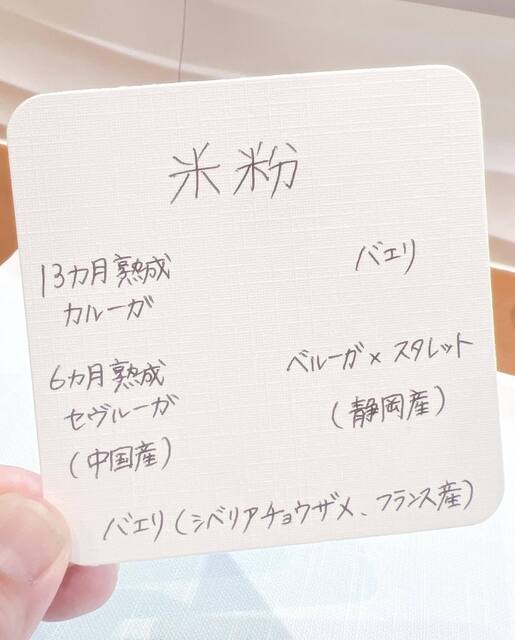 米粉
13カ月熟成
カルーガ
バエリ
6カ月熟成
セヴルーガ
(中国産)
ベルーガ×スタレット
(静岡産)
バエリ(シベリアチョウザメ、フランス産)